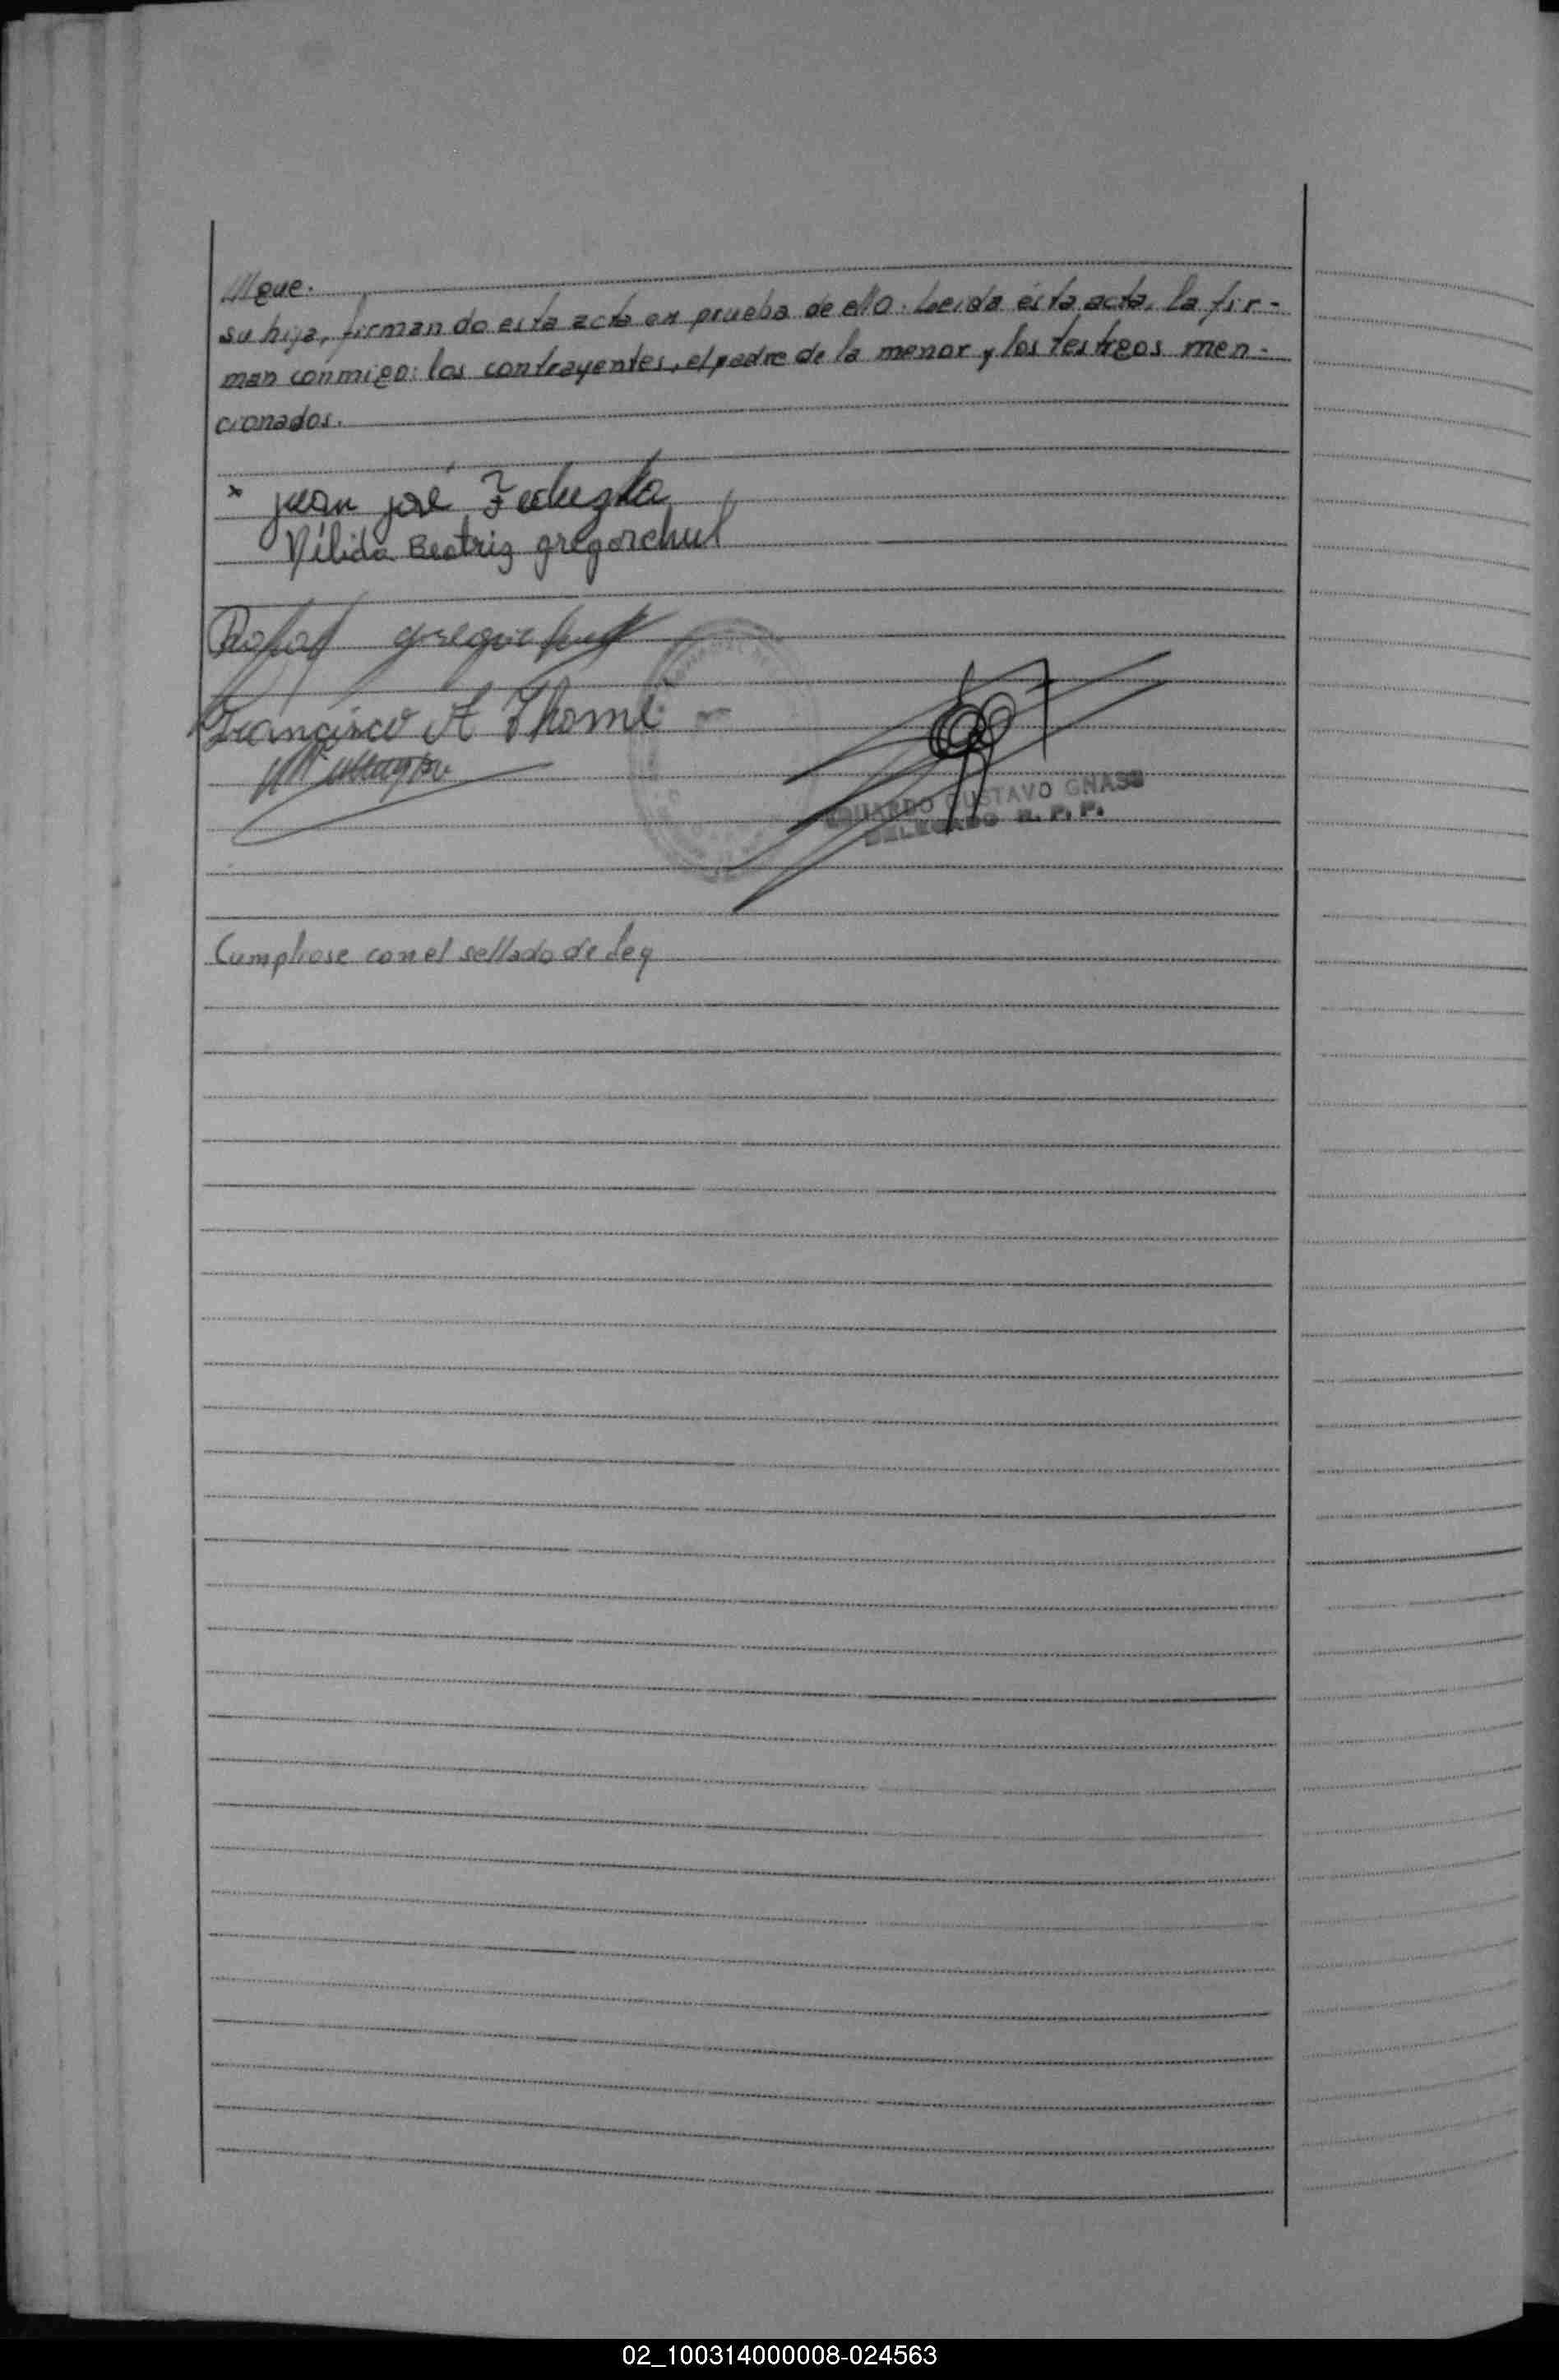 ///gue.
su hija, firmando esta acta en prueba de ello. Leída ésta acta, la fir-
man conmigo: los contrayentes, el padre de la menor y los testigos men-
cionados.
x juan josé
Nélida Beatriz gregorchuk
Francisco A Thomé
EDUARDO GUSTAVO GNASS
DELEGADO R. P. P.
Cumplrose con el sellado de Ley
02_100314000008-024563